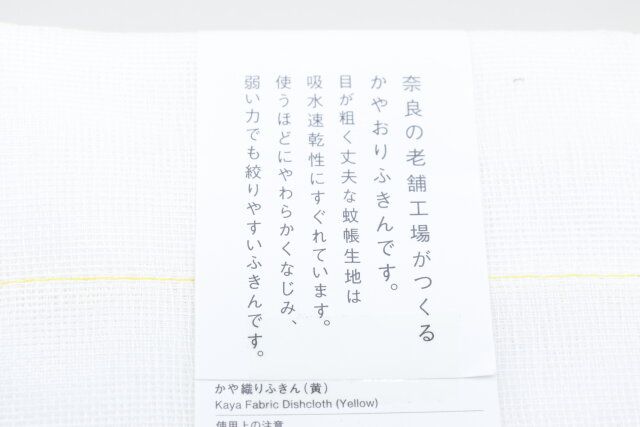 奈良の老舗工場がつくる
かやおりふきんです。
目が粗く丈夫な蚊帳生地は
吸水速乾性にすぐれています。
使うほどにやわらかくなじみ、
弱い力でも絞りやすいふきんです。
かや織りふきん（黄）
Kaya Fabric Dishcloth (Yellow)
使用上の注意